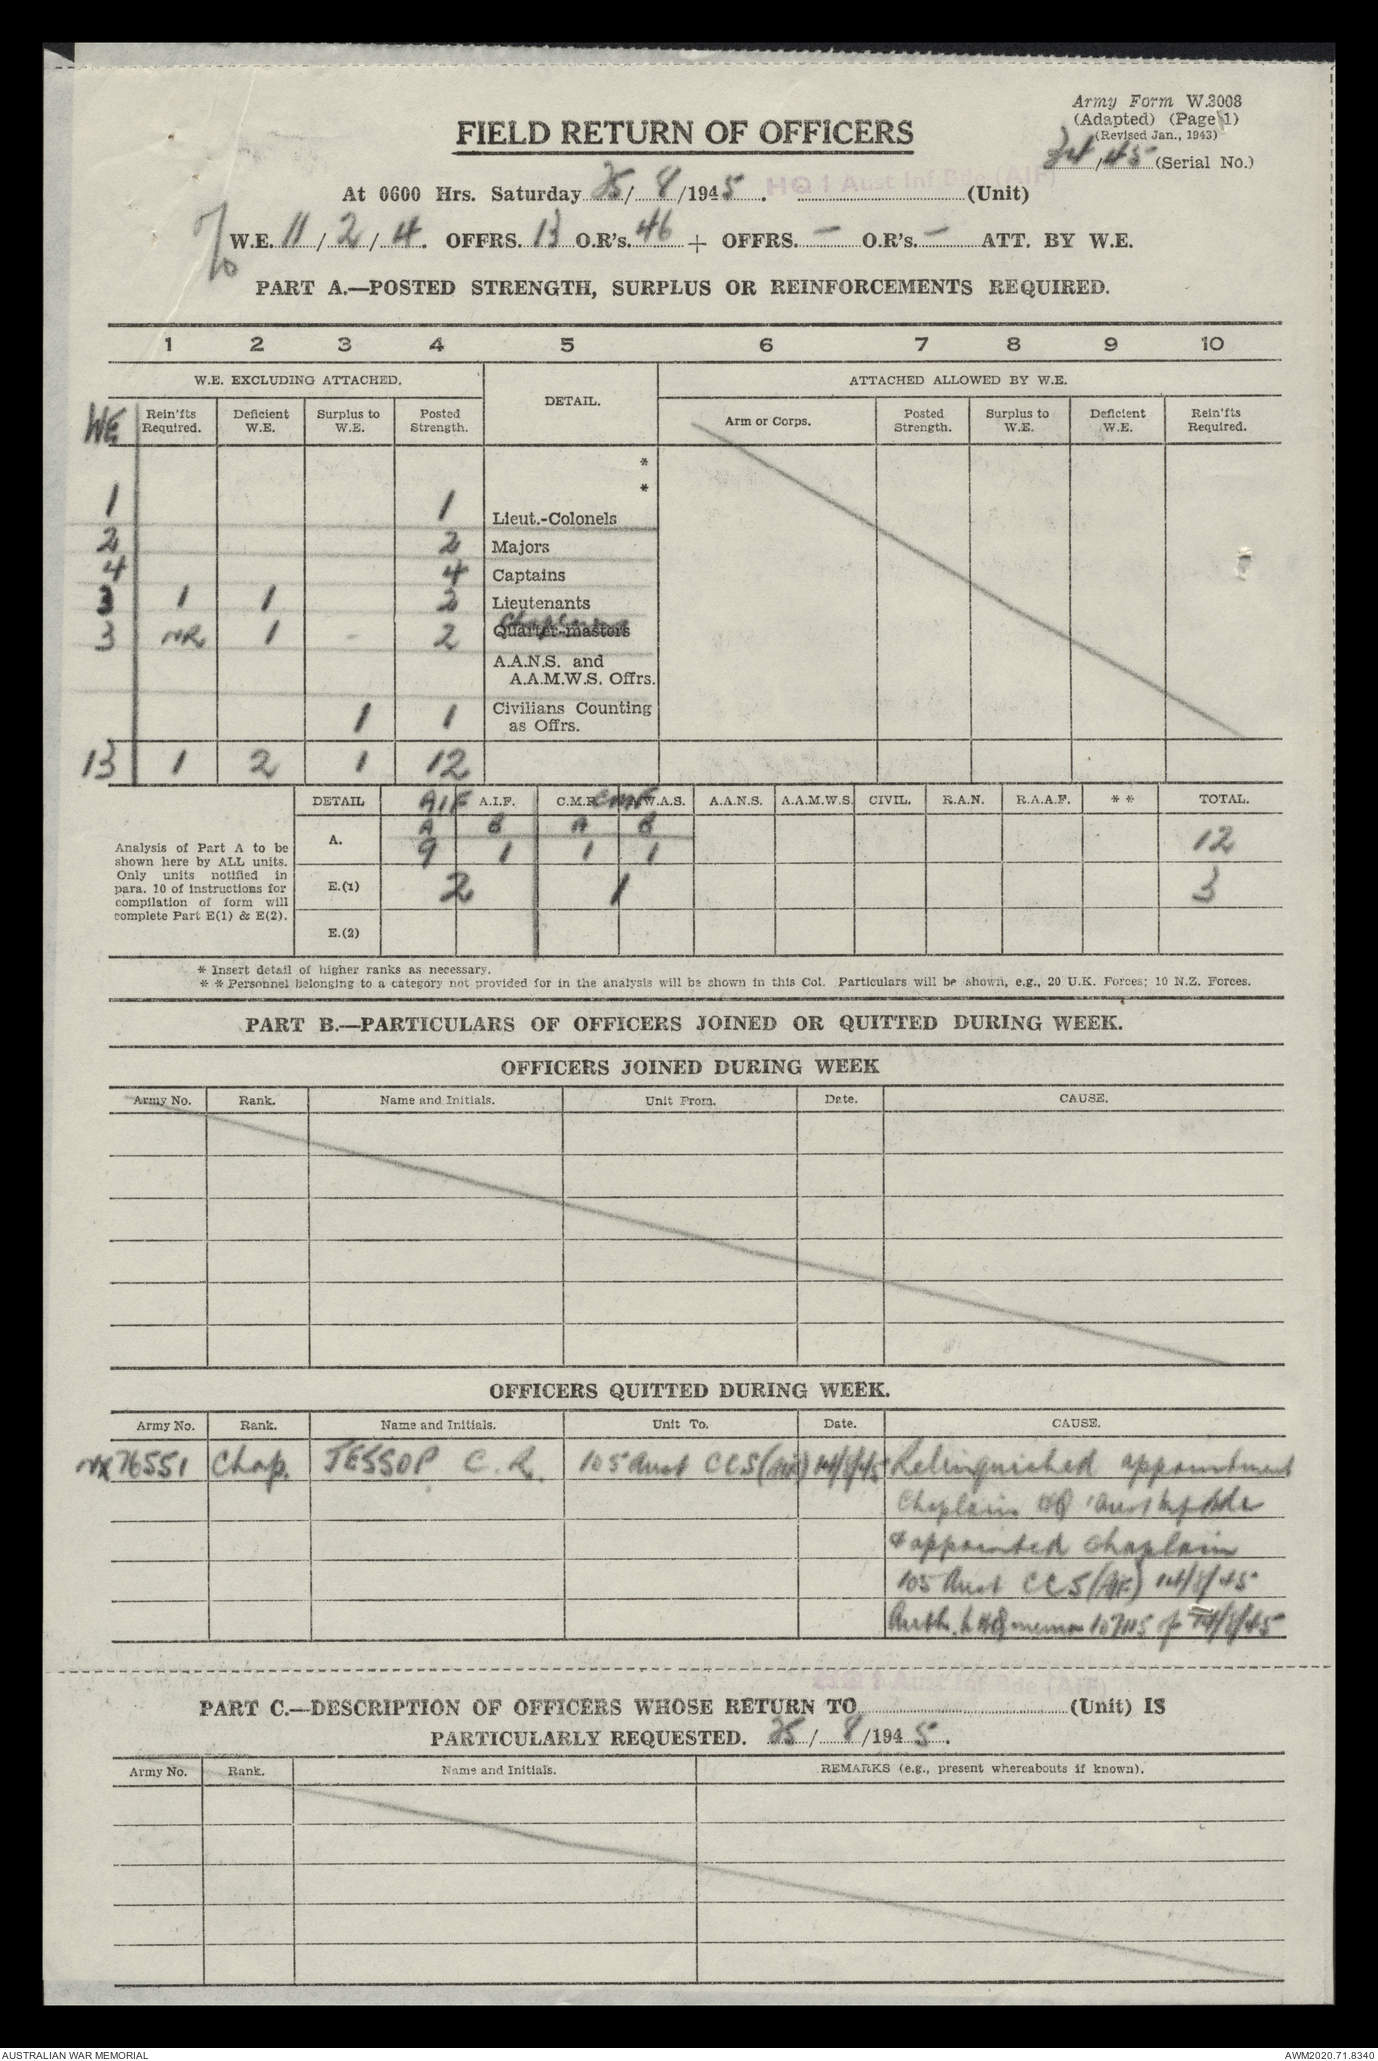 Army Form W.3008
(Adapted) (Page 1)
(Revised Jan., 1943)
34/45 (Serial No.)
FIELD RETURN OF OFFICERS
At 0600 Hrs. Saturday 25/8/1945. HQ 1 Aust Inf Bde (AIF) (Unit)
W.E. 11/2/4. OFFRS. 13 O.R's. 46 + OFFRS. - O.R's. - ATT. BY W.E.
PART A.—POSTED STRENGTH, SURPLUS OR REINFORCEMENTS REQUIRED.
1 2 3 4 5 6 7 8 9 10
W.E. EXCLUDING ATTACHED. DETAIL. ATTACHED ALLOWED BY W.E.
WE Rein'fts Required. Deficient W.E. Surplus to W.E. Posted Strength. Arm or Corps. Posted Strength. Surplus to W.E. Deficient W.E. Rein'fts Required.
*
*
1 1 Lieut.-Colonels
2 2 Majors
4 4 Captains
3 1 1 2 Lieutenants
3 NR 1 - 2 Quarter-masters Chaplains
A.A.N.S. and
A.A.M.W.S. Offrs.
1 1 Civilians Counting
as Offrs.
13 1 2 1 12
DETAIL AIF A.I.F. C.M.F. CMF A.W.A.S. A.A.N.S. A.A.M.W.S. CIVIL. R.A.N. R.A.A.F. * * TOTAL.
A B A B
A. 9 1 1 1 12
E.(1) 2 1 3
E.(2)
Analysis of Part A to be
shown here by ALL units.
Only units notified in
para. 10 of instructions for
compilation of form will
complete Part E(1) & E(2).
* Insert detail of higher ranks as necessary.
* * Personnel belonging to a category not provided for in the analysis will be shown in this Col. Particulars will be shown, e.g., 20 U.K. Forces; 10 N.Z. Forces.
PART B.—PARTICULARS OF OFFICERS JOINED OR QUITTED DURING WEEK.
OFFICERS JOINED DURING WEEK
Army No. Rank. Name and Initials. Unit From. Date. CAUSE.
OFFICERS QUITTED DURING WEEK.
Army No. Rank. Name and Initials. Unit To. Date. CAUSE.
NX76551 Chap. JESSOP C.R. 105 Aust CCS (AIF) 14/8/45 Relinquished appointment
Chaplain HQ 1 Aust Inf Bde
& appointed chaplain
105 Aust CCS (AIF) 14/8/45
Auth. LHQ memo 107115 of 14/8/45
HQ 1 Aust Inf Bde (AIF)
PART C.—DESCRIPTION OF OFFICERS WHOSE RETURN TO (Unit) IS
PARTICULARLY REQUESTED. 25/8/1945.
Army No. Rank. Name and Initials. REMARKS (e.g., present whereabouts if known).
AUSTRALIAN WAR MEMORIAL AWM2020.71.8340